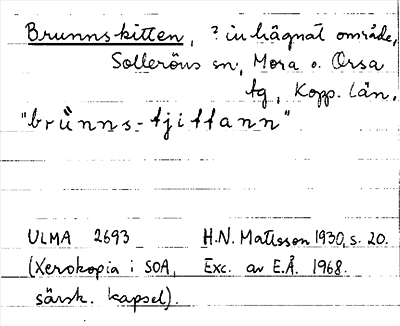 Brunnskitten, ? inhägnat område,
Solleröns sn, Mora o. Orsa
tg, Kopp. län.
"brünns-tjittann"
ULMA 2693 H.N. Matsson 1930, s. 20.
(Xerokopia i SOA, Exc. av E.Å. 1968.
särsk. kapsel).